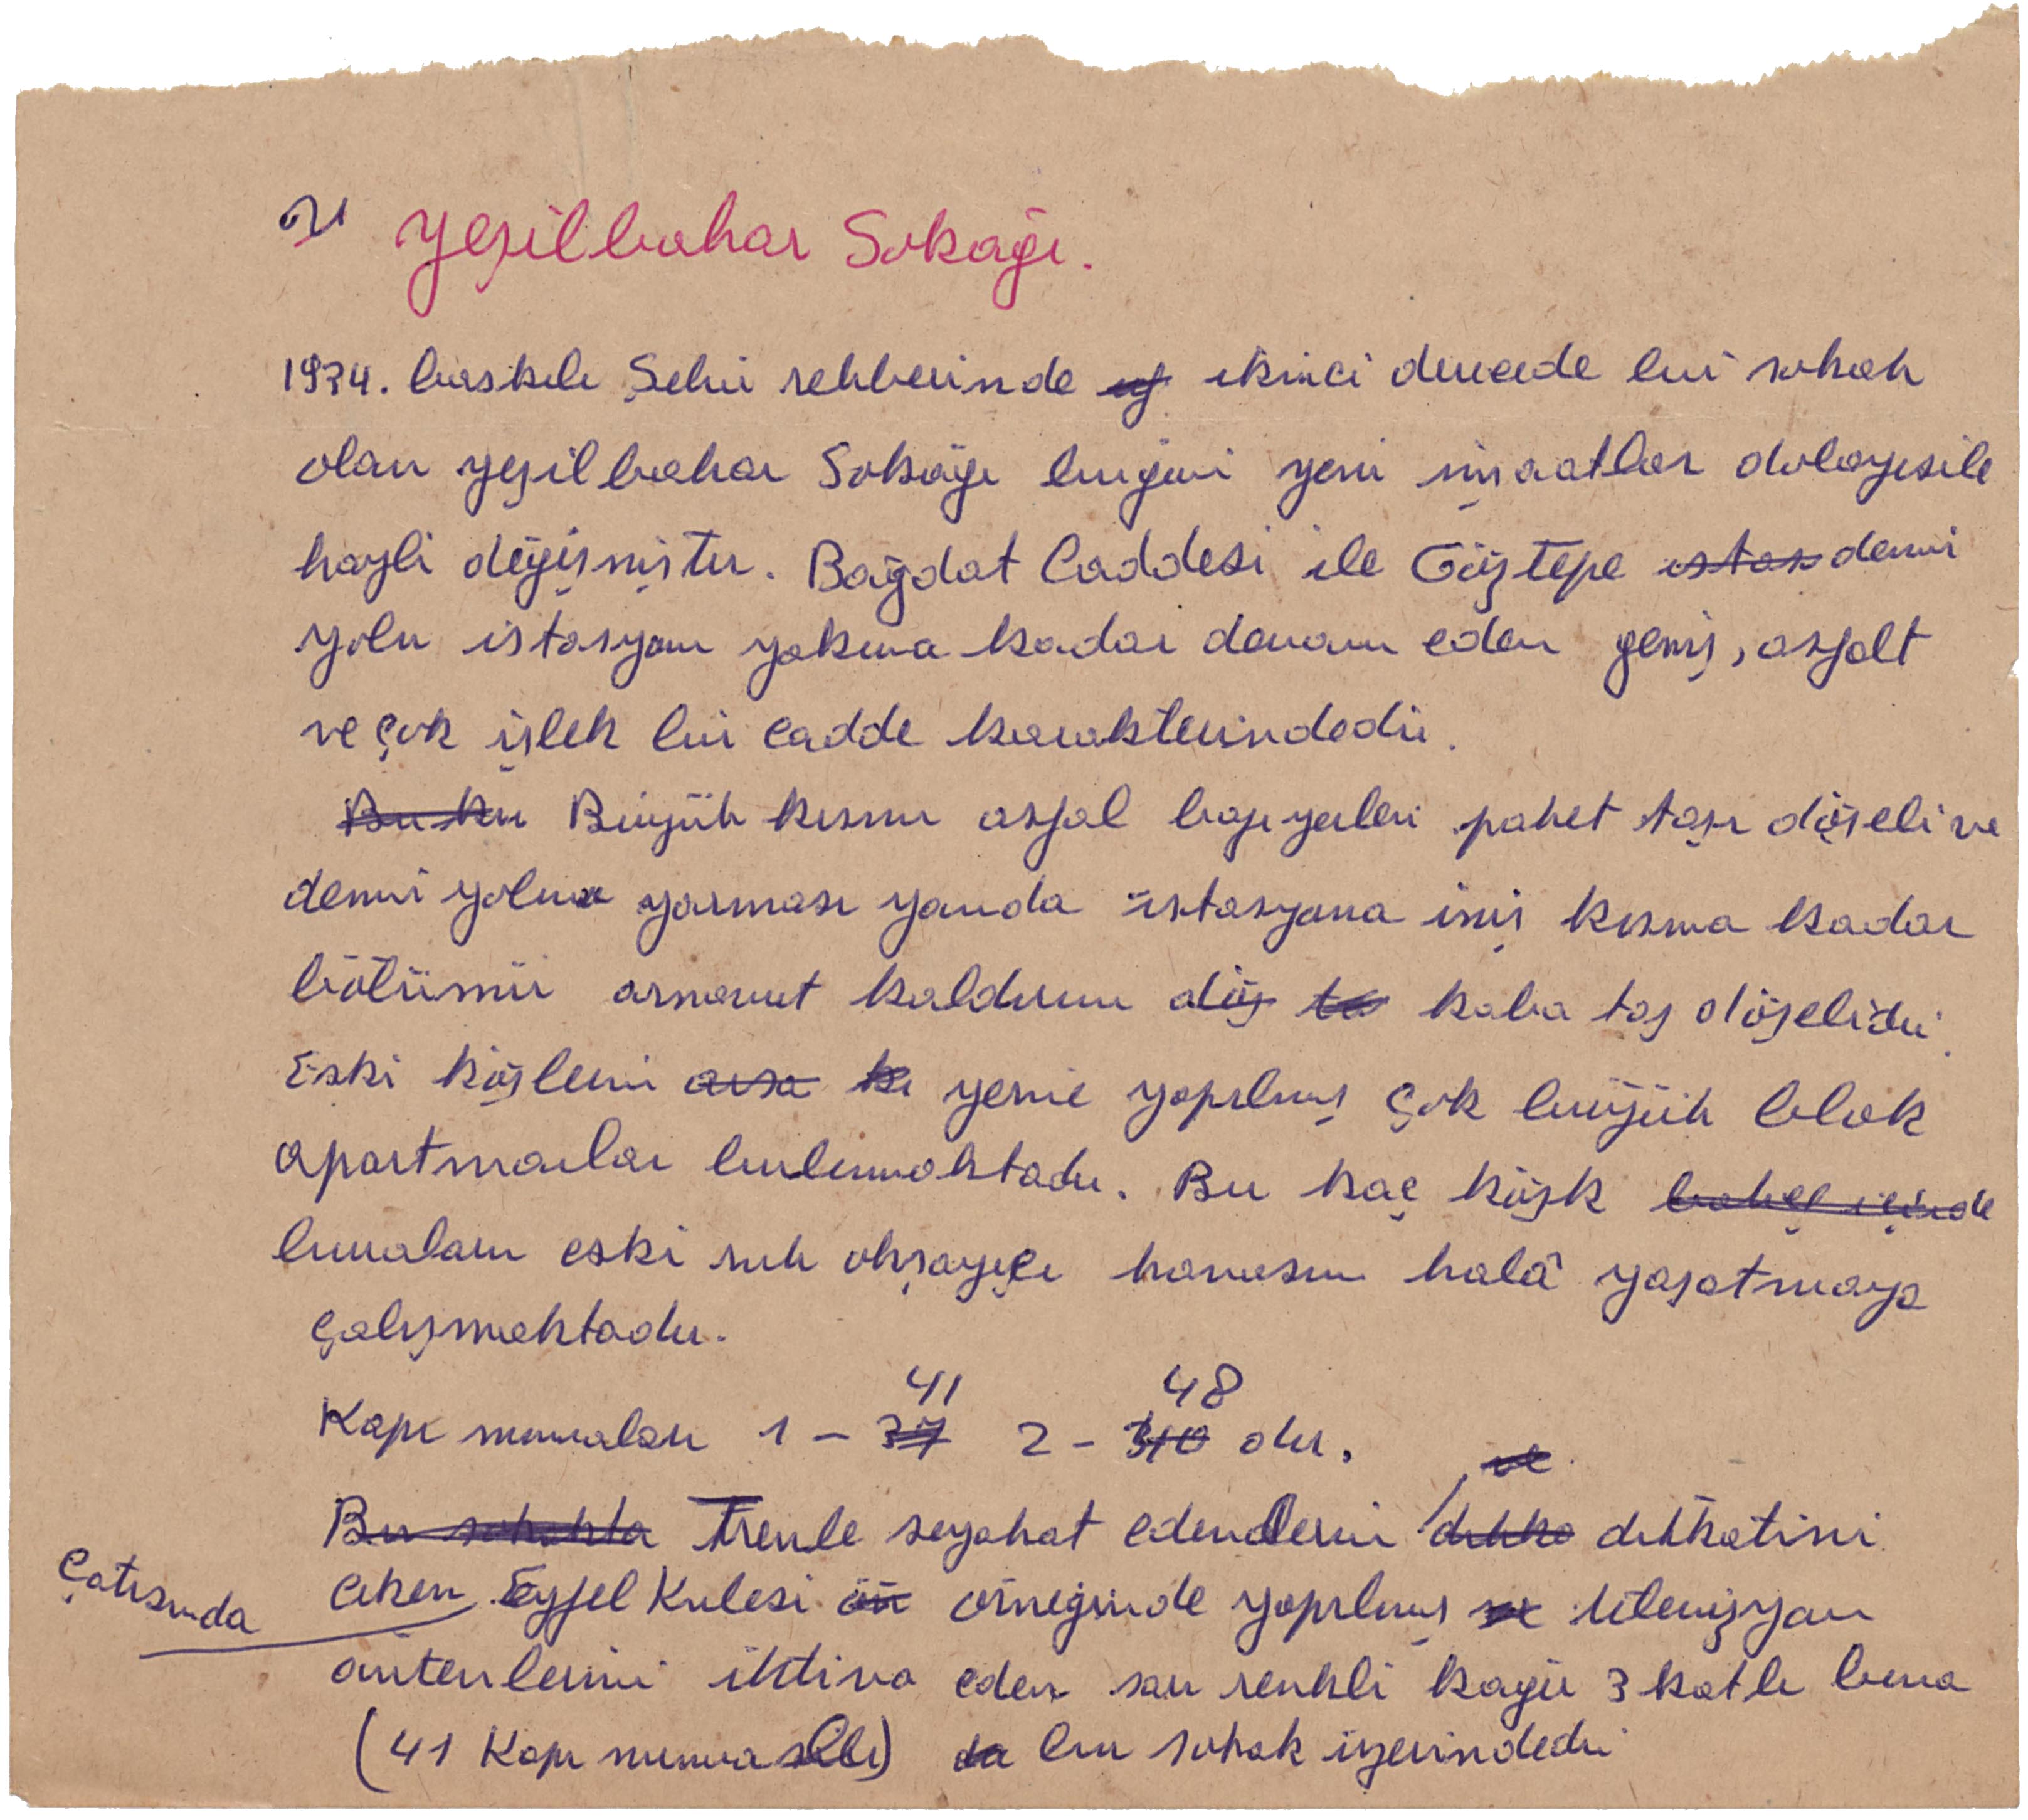 Yeşilbahar Sokağı.
1934. baskılı Şehir rehberinde ikinci derecede bir sokak
olan yeşilbahar Sokağı bugün yeni inşaatlar dolayısile
hayli değişmiştir. Bağdat Caddesi ile Göztepe istas demir
yolu istasyonu yakına kadar devam eden geniş, asfalt
ve çok işlek bir cadde karakterindedir.
Bu kı Büyük kısmı asfal bazı yerleri paket taşı döşeli ve
demir yoluna yarması yanda istasyona iniş kısma kadar
bölümü arnavut kaldırım döş ta kaba taş döşelidir.
Eski köşlerin arsa yerine yapılmış çok büyük blok
apartmanlar bulunmaktadır. Bir kaç köşk bahçe içinde
binaları eski ruh okşayıcı havasını halâ yaşatmaya
çalışmaktadır.
41 48
Kapı numaları 1 - 37 2 - 340 dır.
ve
Bu sokakta Trenle seyahat edenlerin dikka dikkatini
Çatısında
çeken Eyfel Kulesi ön örneğinde yapılmış ve televizyon
antenlerini ihtiva eden sarı renkli kagir 3 katlı bina
(41 Kapı numaralı) da bu sokak üzerindedir